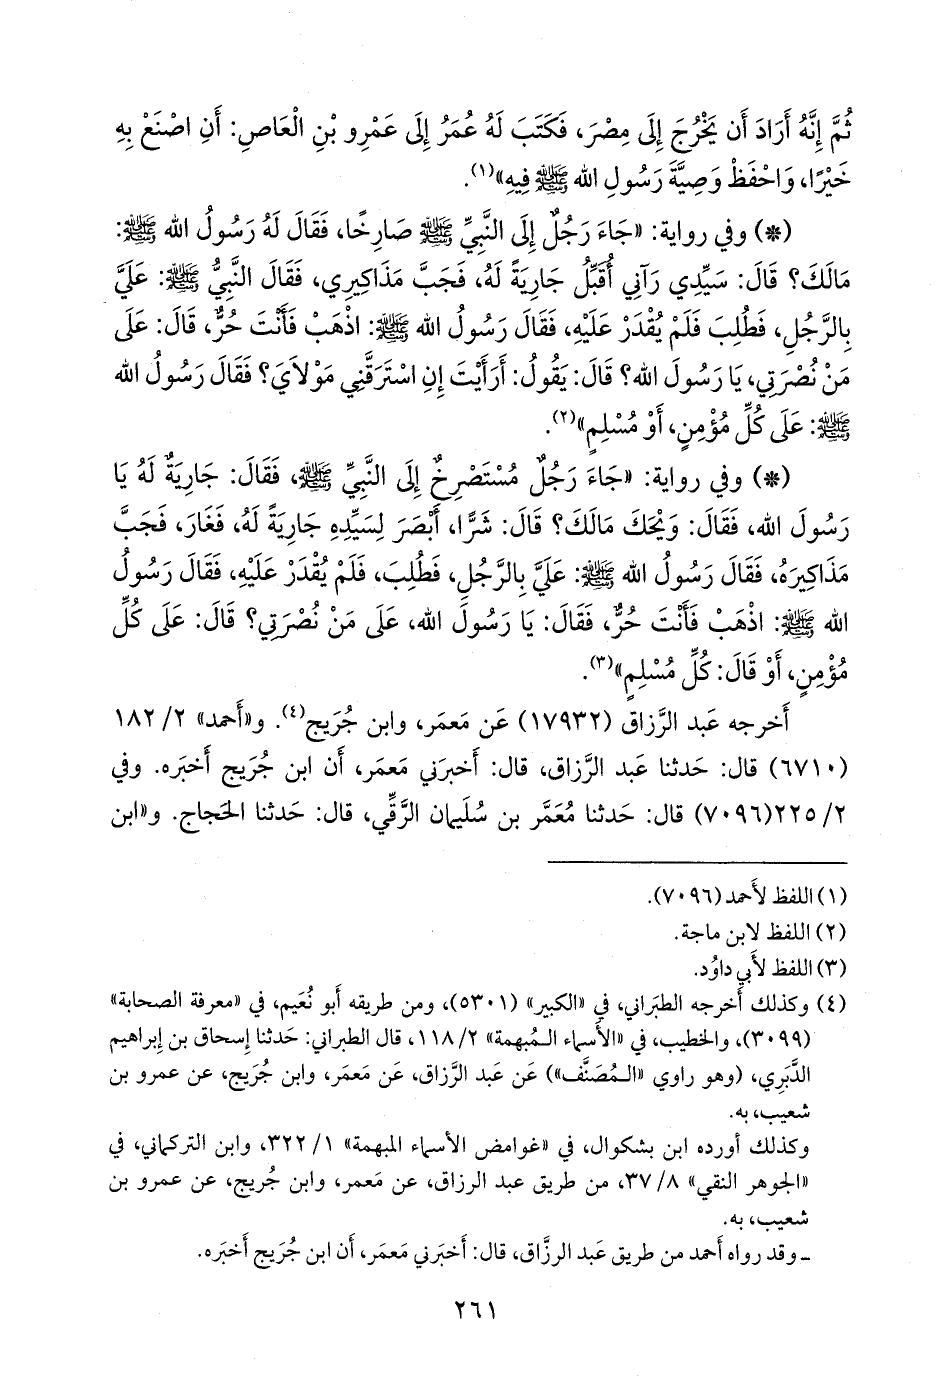 ثُمَّ إِنَّهُ أَرَادَ أَن يَخْرُجَ إِلَى مِصْرَ، فَكَتَبَ لَهُ عُمَرُ إِلَى عَمْرِو بْنِ الْعَاصِ: أَنِ اصْنَعْ بِهِ
خَيْرًا، وَاحْفَظْ وَصِيَّةَ رَسُولِ الله ﷺ فِيهِ»(١).
(*) وفي رواية: «جَاءَ رَجُلٌ إِلَى النَّبِيِّ ﷺ صَارِخًا، فَقَالَ لَهُ رَسُولُ الله ﷺ:
مَالَكَ؟ قَالَ: سَيِّدِي رَآنِي أُقَبِّلُ جَارِيَةً لَهُ، فَجَبَّ مَذَاكِيرِي، فَقَالَ النَّبِيُّ ﷺ: عَلَيَّ
بِالرَّجُلِ، فَطُلِبَ فَلَمْ يُقْدَرْ عَلَيْهِ، فَقَالَ رَسُولُ الله ﷺ: اذْهَبْ فَأَنْتَ حُرٌّ، قَالَ: عَلَى
مَنْ نُصْرَتِي، يَا رَسُولَ الله؟ قَالَ: يَقُولُ: أَرَأَيْتَ إِنِ اسْتَرَقَّنِي مَوْلَايَ؟ فَقَالَ رَسُولُ الله
ﷺ: عَلَى كُلِّ مُؤْمِنٍ، أَوْ مُسْلِمٍ»(٢).
(*) وفي رواية: «جَاءَ رَجُلٌ مُسْتَصْرِخٌ إِلَى النَّبِيِّ ﷺ، فَقَالَ: جَارِيَةٌ لَهُ يَا
رَسُولَ الله، فَقَالَ: وَيْحَكَ مَالَكَ؟ قَالَ: شَرًّا، أَبْصَرَ لِسَيِّدِهِ جَارِيَةً لَهُ، فَغَارَ، فَجَبَّ
مَذَاكِيرَهُ، فَقَالَ رَسُولُ الله ﷺ: عَلَيَّ بِالرَّجُلِ، فَطُلِبَ، فَلَمْ يُقْدَرْ عَلَيْهِ، فَقَالَ رَسُولُ
الله ﷺ: اذْهَبْ فَأَنْتَ حُرٌّ، فَقَالَ: يَا رَسُولَ الله، عَلَى مَنْ نُصْرَتِي؟ قَالَ: عَلَى كُلِّ
مُؤْمِنٍ، أَوْ قَالَ: كُلِّ مُسْلِمٍ»(٣).
أَخرجه عَبد الرَّزاق (١٧٩٣٢) عَن مَعمَر، وابن جُرَيج(٤). و«أَحمد» ٢/ ١٨٢
(٦٧١٠) قال: حَدثنا عَبد الرَّزاق، قال: أَخبرَني مَعمَر، أَن ابن جُرَيج أَخبَره. وفي
٢/ ٢٢٥(٧٠٩٦) قال: حَدثنا مُعَمَّر بن سُلَيمان الرَّقِّي، قال: حَدثنا الحَجاج. و«ابن
(١) اللفظ لأَحمد (٧٠٩٦).
(٢) اللفظ لابن ماجة.
(٣) اللفظ لأَبي داوُد.
(٤) وكذلك أَخرجه الطبَراني، في «الكبير» (٥٣٠١)، ومن طريقه أَبو نُعَيم، في «معرفة الصحابة»
(٣٠٩٩)، والخطيب، في «الأَسماء المُبهمة» ٢/ ١١٨، قال الطبراني: حَدثنا إِسحاق بن إِبراهيم
الدَّبَرِي، (وهو راوي «المُصَنَّف») عَن عَبد الرَّزاق، عَن مَعمَر، وابن جُرَيج، عَن عمرو بن
شعيب، به.
وكذلك أورده ابن بشكوال، في «غوامض الأسماء المبهمة» ١/ ٣٢٢، وابن التركماني، في
«الجوهر النقي» ٨/ ٣٧، من طريق عبد الرزاق، عن مَعمر، وابن جُريج، عن عمرو بن
شعيب، به.
ـ وقد رواه أَحمد من طريق عَبد الرزَّاق، قال: أَخبَرني مَعمَر، أَن ابن جُرَيج أَخبَره.
٢٦١